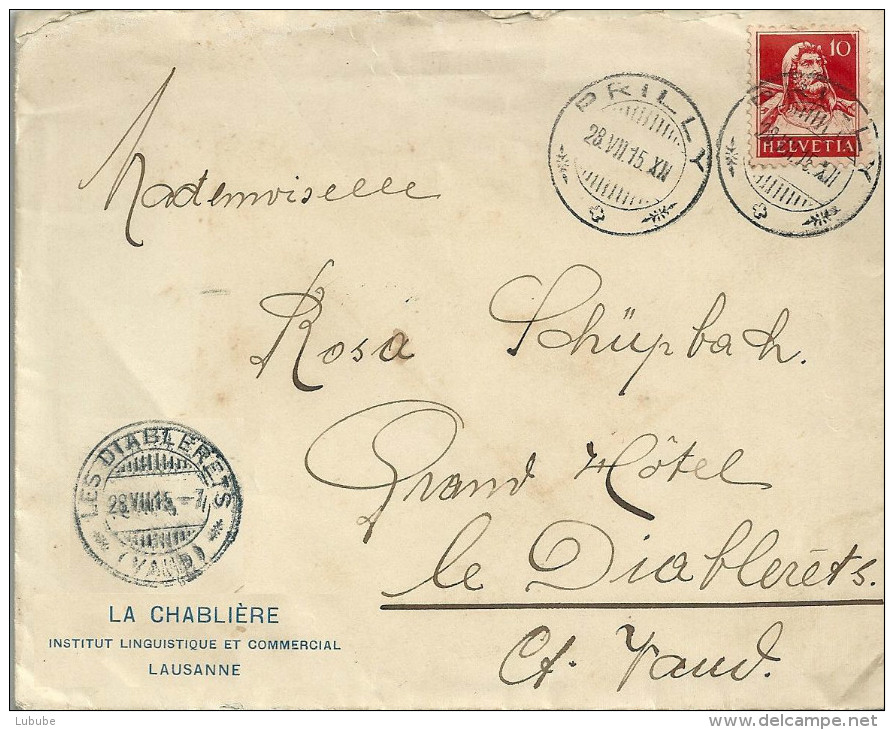 10
HELVETIA
PRILLY
28.VII.15.XII
PRILLY
28.VII.15.XII
Mademoiselle
Rosa Schüpbach.
Grand Hôtel
le Diablerets.
Ct. Vaud.
LES DIABLERETS
28.VII.15.-7
(VAUD)
LA CHABLIÈRE
INSTITUT LINGUISTIQUE ET COMMERCIAL
LAUSANNE
Lubube
www.delcampe.net